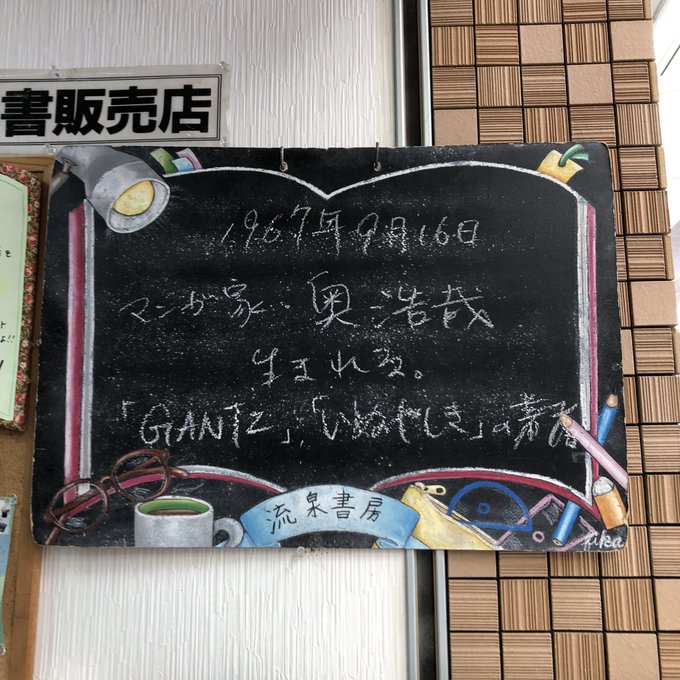 書販売店
1967年9月16日
マンガ家・奥浩哉
生まれる。
「GANTZ」、「いぬやしき」の著者
流泉書房
fika